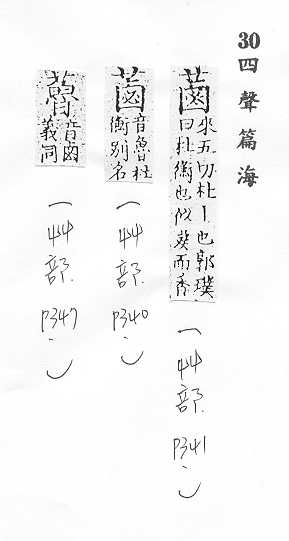 30四聲篇海
蓾來五切杜丨也郭璞
曰杜衡也似葵而香
(艸部.P341.)
蓾音魯杜
衡別名
(艸部.P340.)
音鹵
義同
(艸部.P347.)